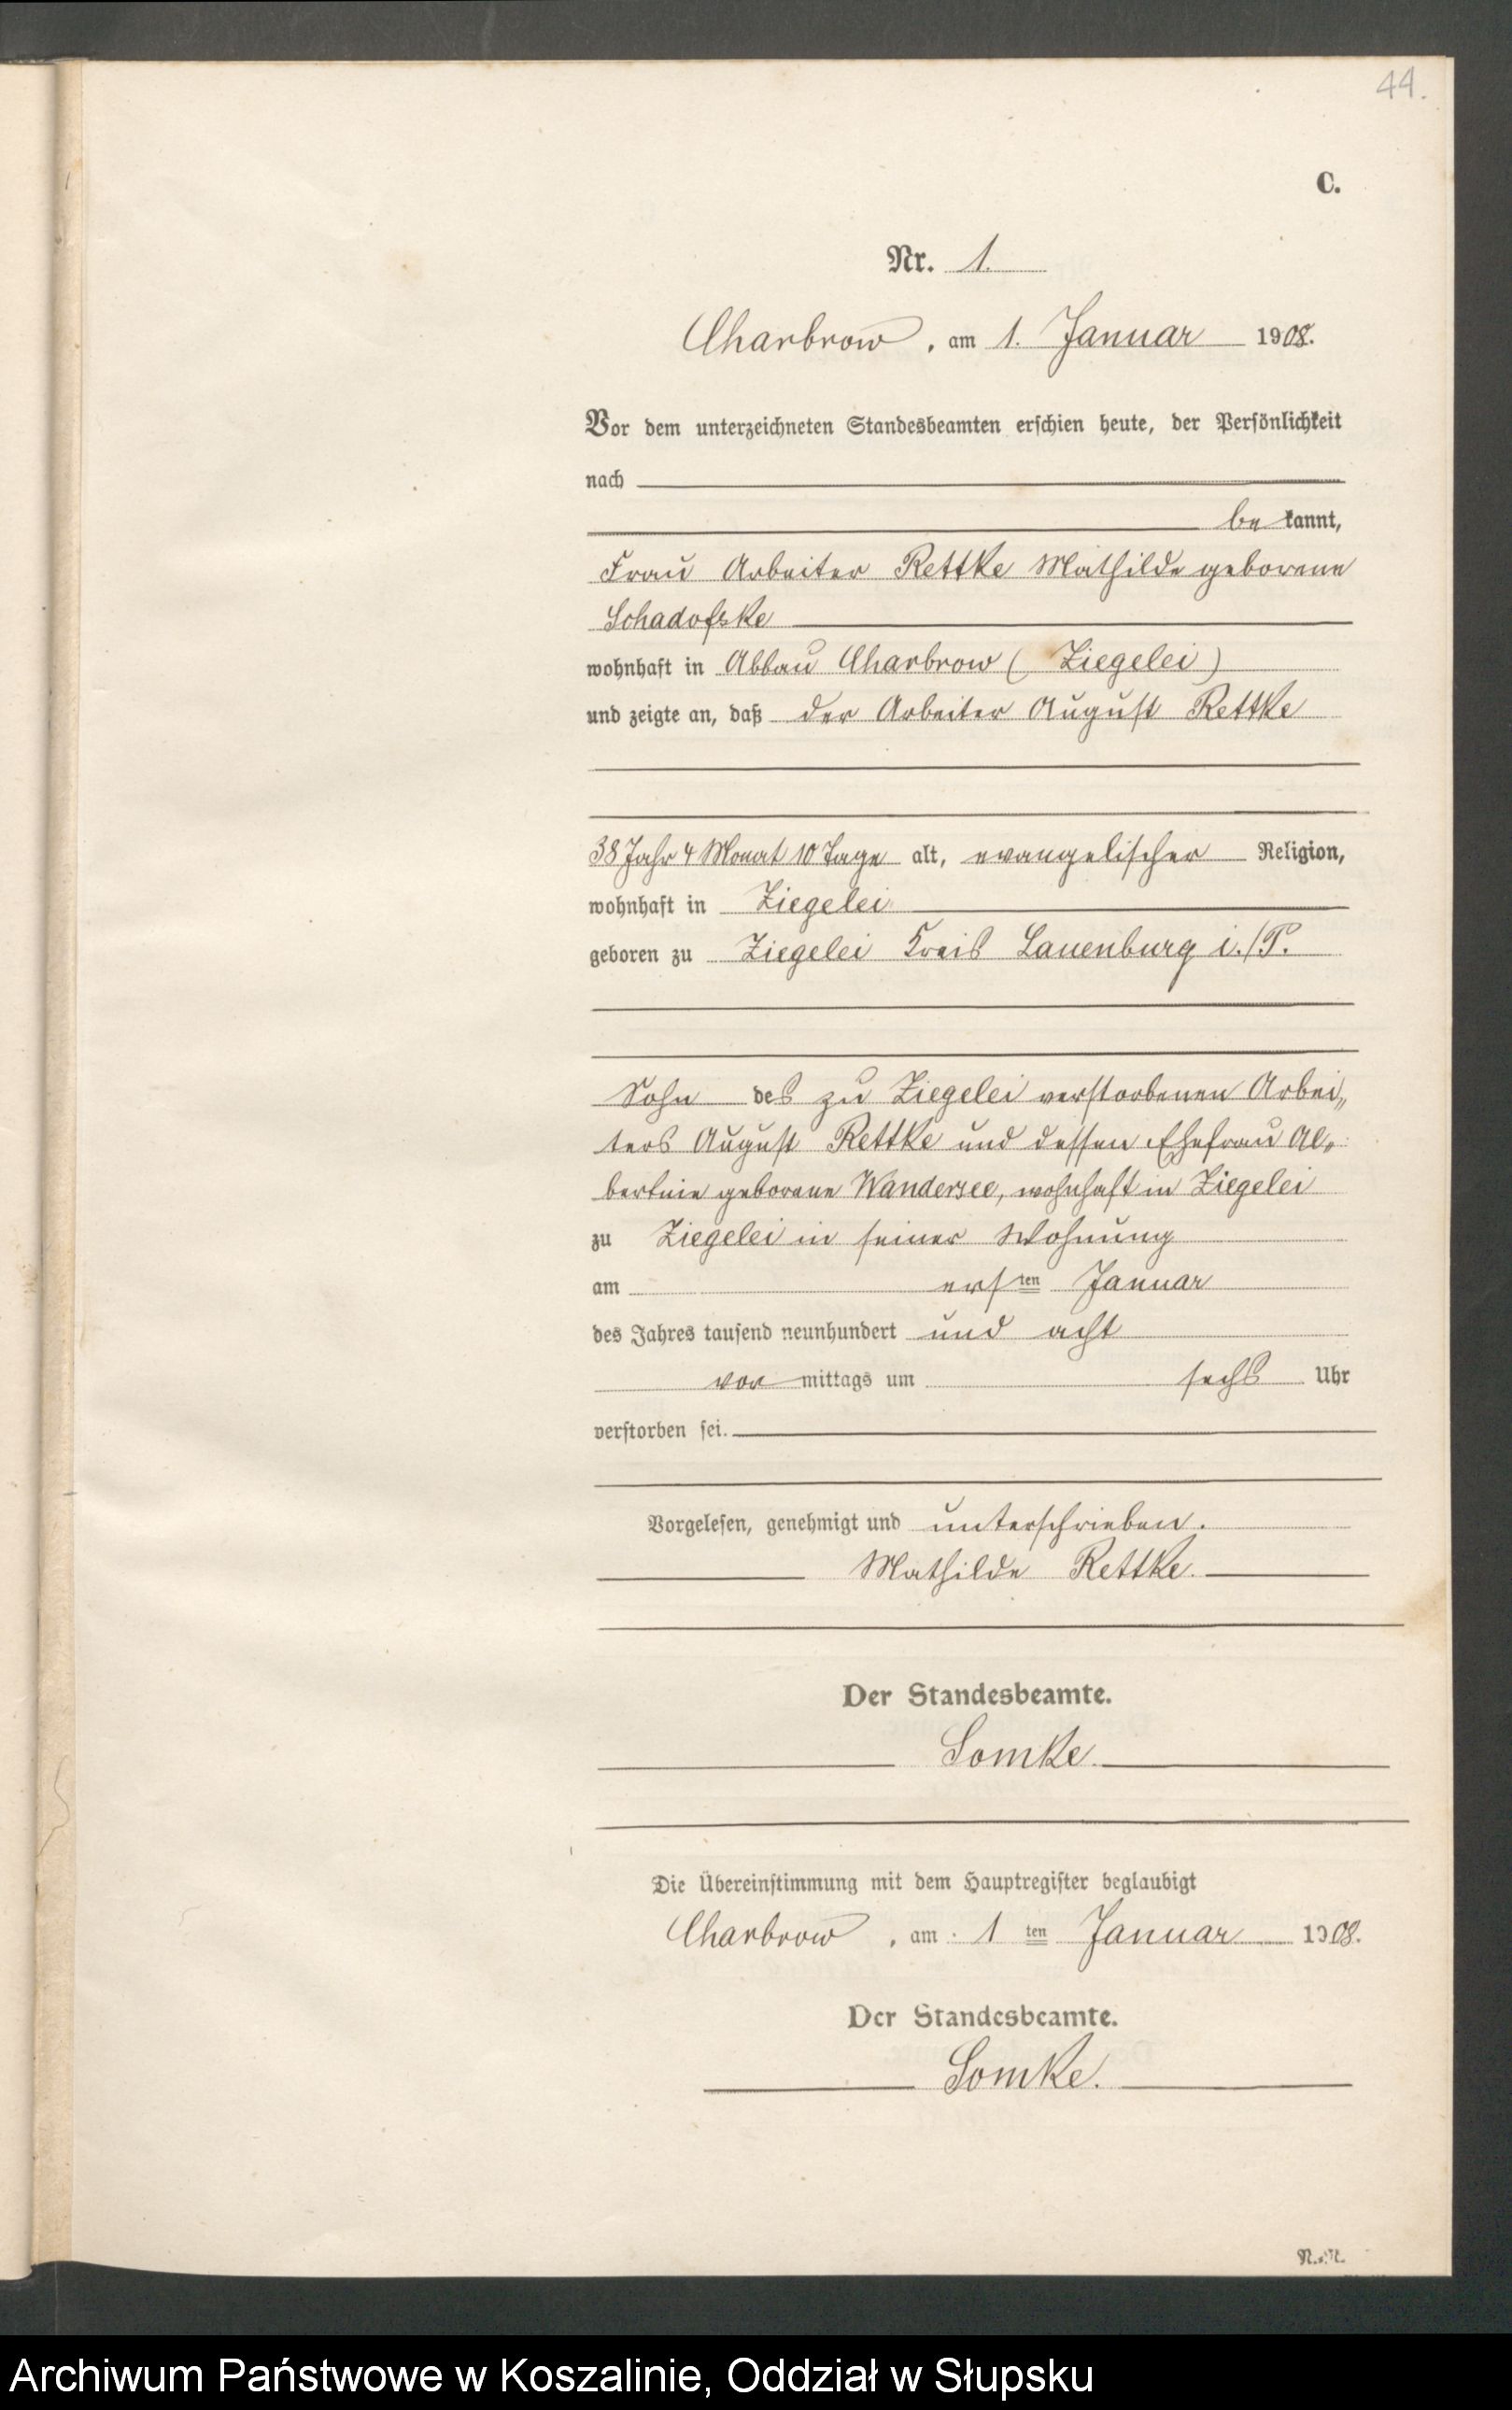 44.
C.
Nr. 1.
Charbrow, am 1. Januar 1908.
Vor dem unterzeichneten Standesbeamten erschien heute, der Persönlichkeit
nach
be kannt,
Frau Arbeiter Rettke Mathilde geborene
Schadofske
wohnhaft in Abbau Charbrow (Ziegelei)
und zeigte an, daß der Arbeiter August Rettke
38 Jahr 4 Monat 10 Tage alt, evangelischer Religion,
wohnhaft in Ziegelei
geboren zu Ziegelei Kreis Lauenburg i./P.
Sohn des zu Ziegelei verstorbenen Arbei„
ters August Rettke und dessen Ehefrau Al„
bertnie geborene Wandersee, wohnhaft in Ziegelei
zu Ziegelei in seiner Wohnung
am ersten Januar
des Jahres tausend neunhundert und acht
vor mittags um sechs Uhr
verstorben sei.
Vorgelesen, genehmigt und unterschrieben.
Mathilde Rettke.
Der Standesbeamte.
Somke.
Die Übereinstimmung mit dem Hauptregister beglaubigt
Charbrow, am 1 ten Januar 1908.
Der Standesbeamte.
Somke.
Archiwum Państwowe w Koszalinie, Oddział w Słupsku